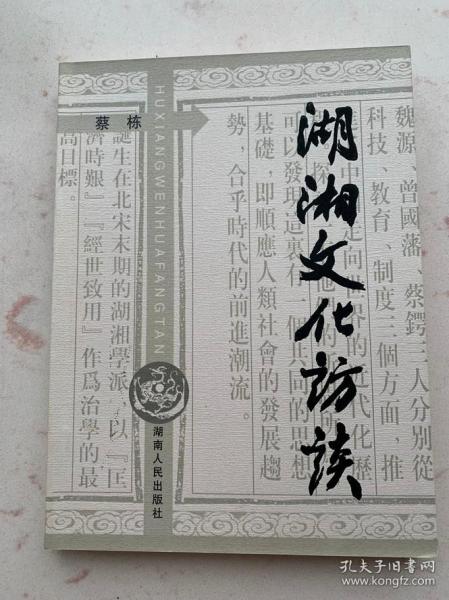 湖湘文化访谈
蔡栋
HUXIANGWENHUAFANGTAN
湖南人民出版社
魏源、曾國藩、蔡鍔三人分别從
科技、教育、制度三個方面，推
中
走向世界的近代化歷
可以發現這裏有一個共同的思想
基礎，即順應人類社會的發展趨
勢，合乎時代的前進潮流。
誕生在北宋末期的湖湘學派，以『匡
濟時艱』『經世致用』作爲治學的最
高目標。
孔夫子旧书网
www.kongfz.com